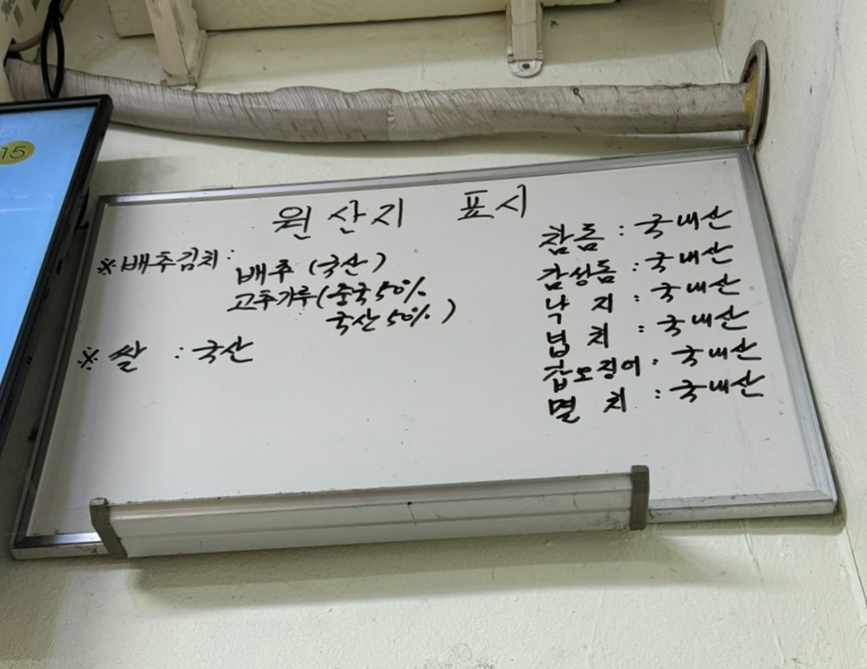 15
원산지 표시
※배추김치:
배추 (국산)
고추가루(중국50%
국산50%)
※쌀 : 국산
참돔 : 국내산
감성돔 : 국내산
낙지 : 국내산
넙치 : 국내산
갑오징어 : 국내산
멸치 : 국내산